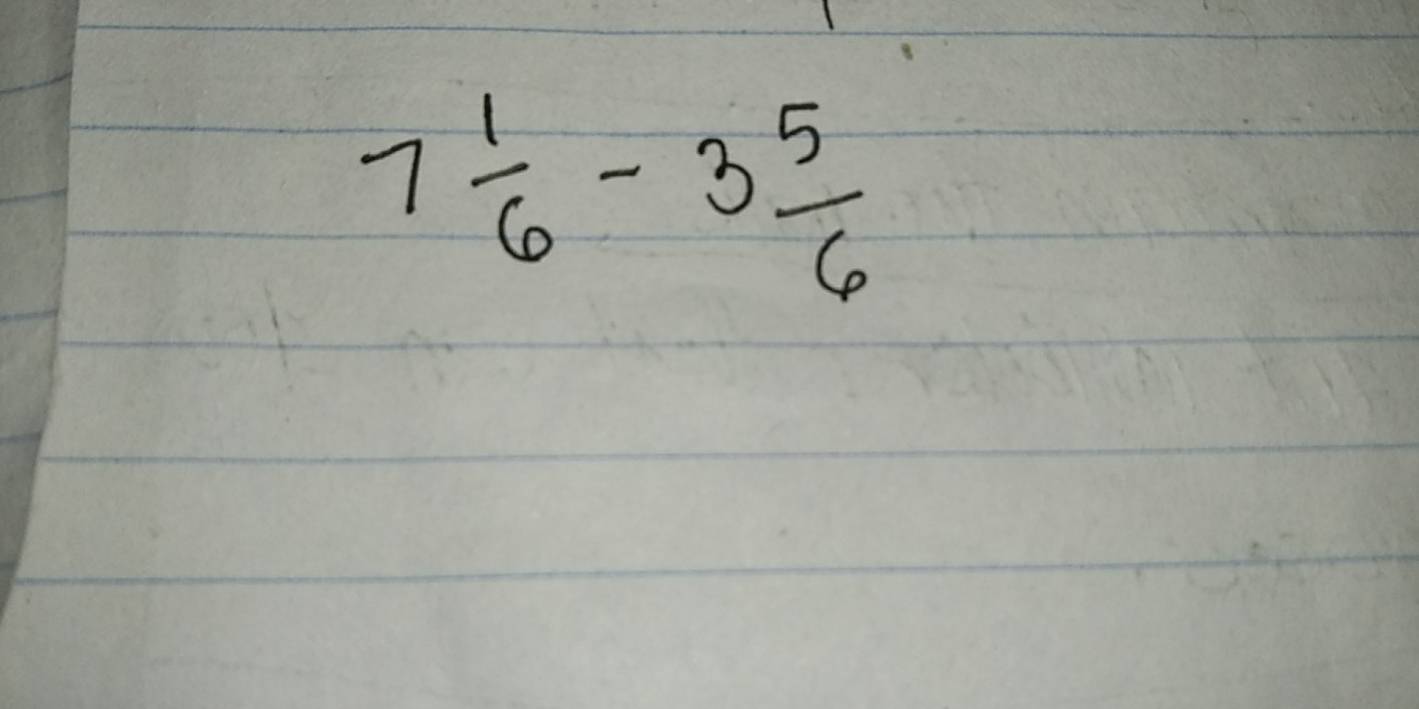 7 1/6 - 3 5/6